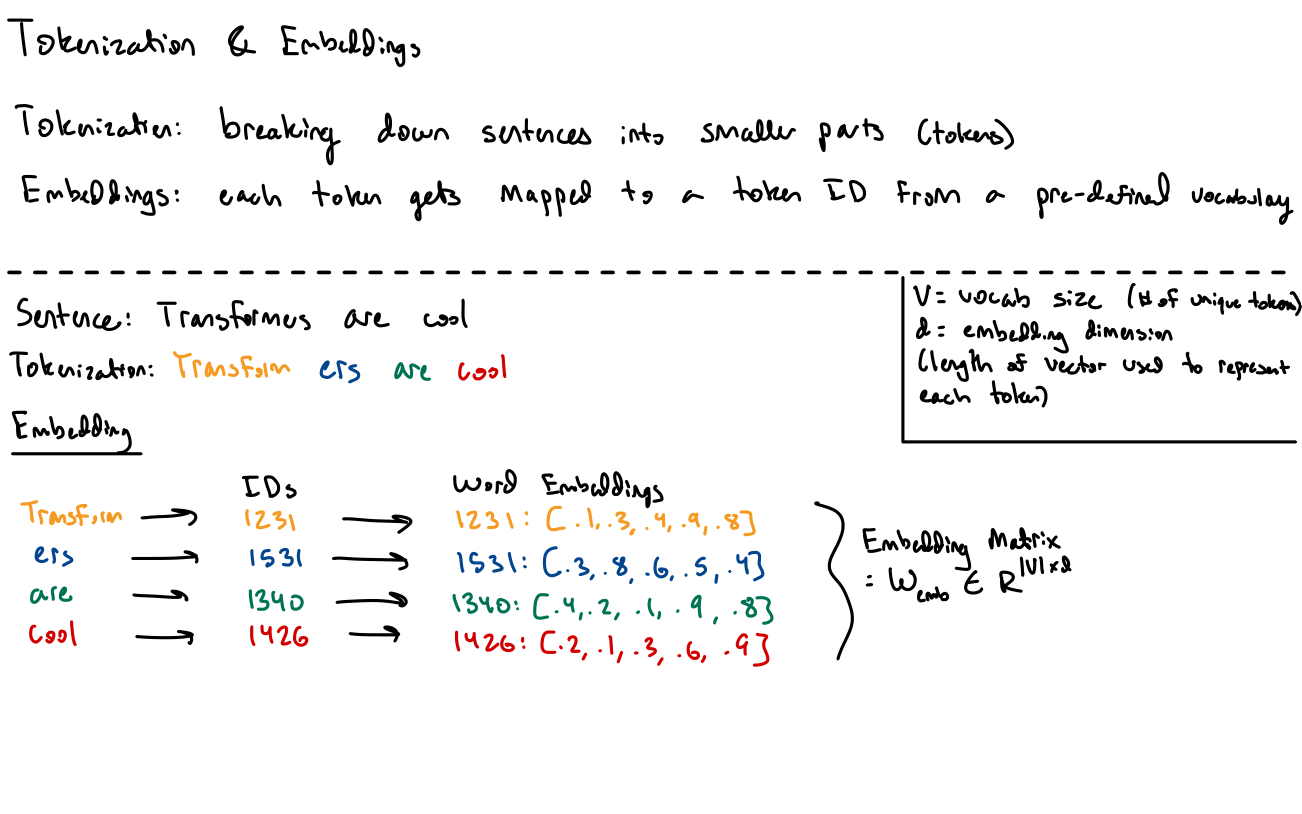 Tokenization & Embeddings
Tokenization: breaking down sentences into smaller parts (tokens)
Embeddings: each token gets mapped to a token ID from a pre-defined vocabulay
Sentence: Transformers are cool
Tokenization: Transform ers are cool
V = vocab size (# of unique tokens)
d = embedding dimension
(length of vector used to represent
each token)
Embedding
IDs Word Embeddings
Transform → 1231 → 1231: [.1, .3, .4, .9, .8]
ers → 1531 → 1531: [.3, .8, .6, .5, .4]
are → 1340 → 1340: [.4, .2, .1, .9, .8]
cool → 1426 → 1426: [.2, .1, .3, .6, .9]
Embedding Matrix
= W_emb ∈ R^|V|×d